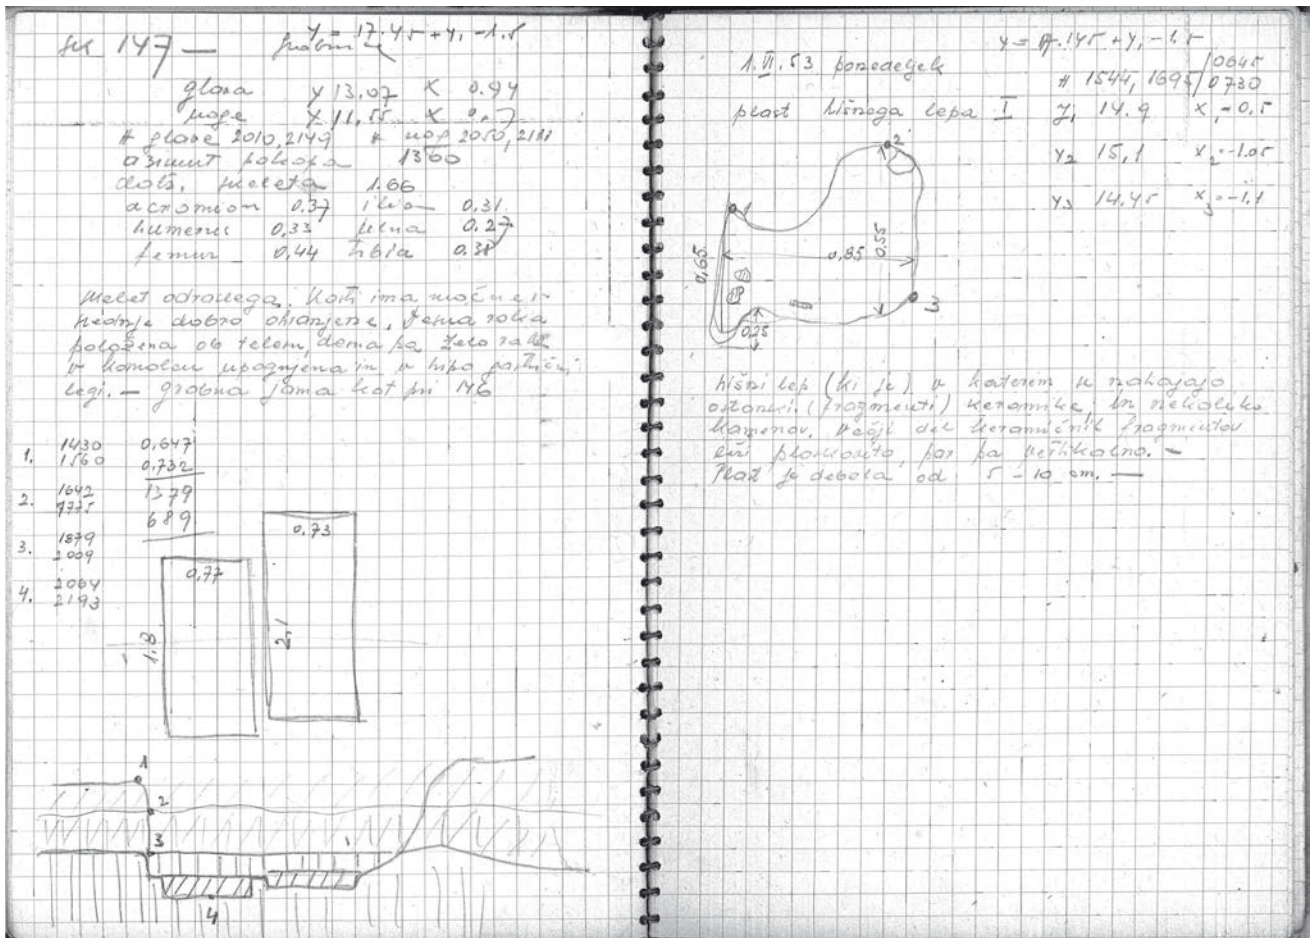 sk 147 —
y = 17.45 + y, - 1.5
glava y 13,07 x 0.94
noge y 11,55 x
# glave 2010, 2149 # nog 2050, 2181
azimut pokopa 1360
dolž. skeleta 1.66
acromion 0.37 ilia 0.31
humerus 0.33 ulna 0.27
femur 0,44 tibia 0.38
skelet odraslega. Kosti ima močne in
srednje dobro ohranjene, desna roka
položena ob telem,
v komolcu upognjena in v
legi. — grobna jama kot pri 146
1. 1430 0,647
1560 0,732
2. 1642 1379
1775 689
3. 1879
2009
4. 2064
2193
0,77
1.8
0.73
2.1
1
2
3
4
1.VI.53 ponedeljek
0645
# 1544, 1695 / 0730
plast hišnega lepa I y, 14.9 x, -0.5
y2 15,1 x2 -1.05
y3 14.45 x3 -1.1
1
2
3
0,65
0,85
0.55
0.25
hišni lep (ki je) v katerem se nahajajo
ostanki (fragmenti) keramike, in nekoliko
kamenov. Večji del keramičnih fragmentov
leži ploskovito, par pa vertikalno. —
Plast je debela od 5 - 10 cm. —